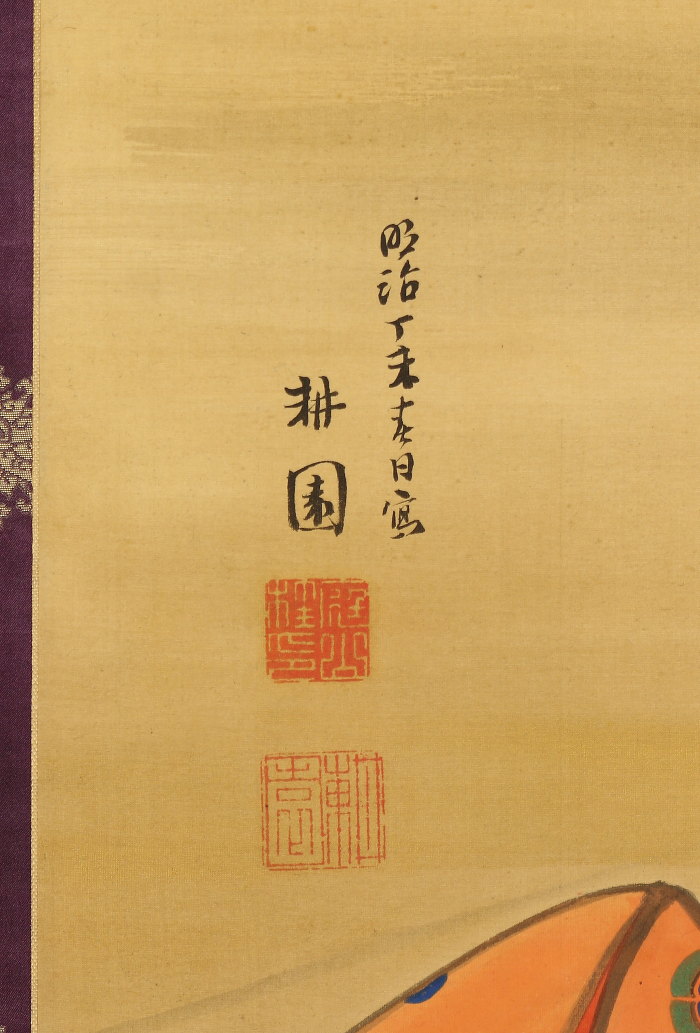 明治丁未春日寫
耕園